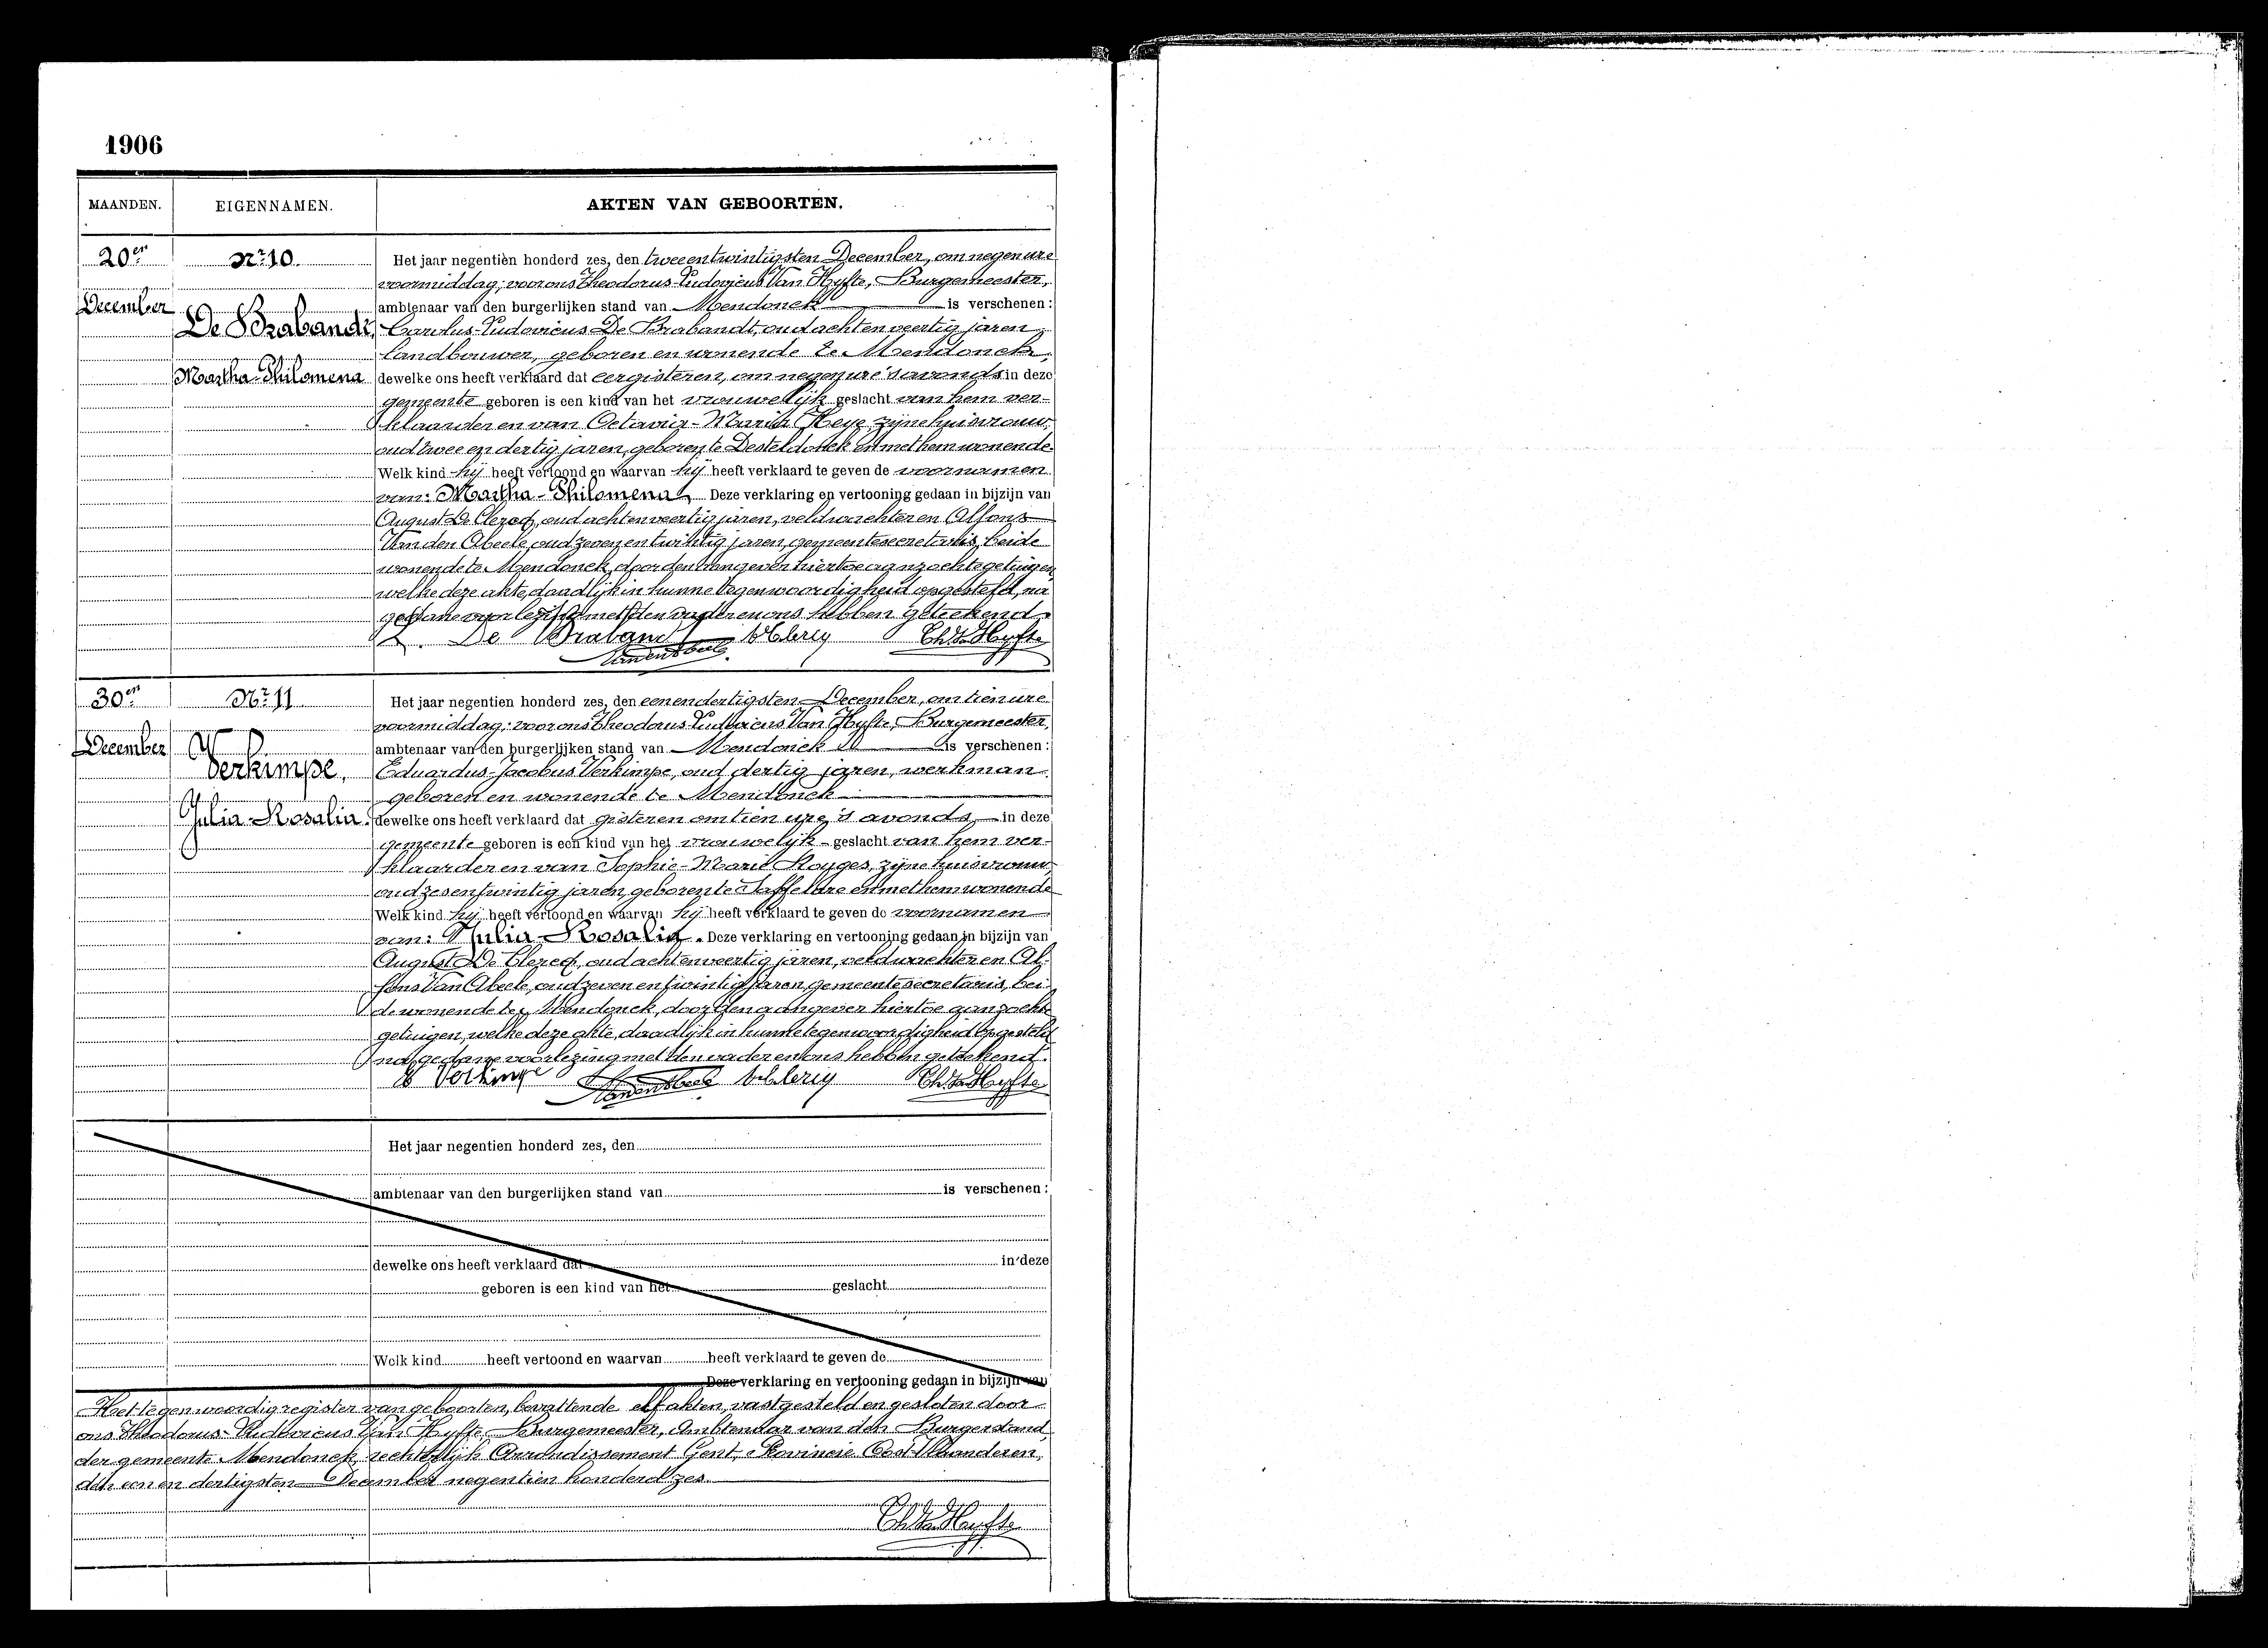 1906
MAANDEN. EIGENNAMEN. AKTEN VAN GEBOORTEN.
20en December
Nr. 10.
De Brabandt,
Martha-Philomena
Het jaar negentien honderd zes, den tweeentwintigsten December, om negen ure
voormiddag, voor ons Theodorus-Ludovicus Van Hyfte, Burgemeester,
ambtenaar van den burgerlijken stand van Mendonck is verschenen:
Carolus-Ludovicus De Brabandt, oud achtenveertig jaren,
landbouwer, geboren en wonende te Mendonck,
dewelke ons heeft verklaard dat eergisteren, om negen ure 's avonds in deze
gemeente geboren is een kind van het vrouwelijk geslacht van hem ver-
klaarder en van Octavia-Maria Heye, zijne huisvrouw,
oud twee en dertig jaren, geboren te Desteldonck en met hem wonende
Welk kind hij heeft vertoond en waarvan hij heeft verklaard te geven de voornamen
van: Martha-Philomena. Deze verklaring en vertooning gedaan in bijzijn van
August De Clercq, oud achtenveertig jaren, veldwachter en Alfons
Van den Abeele, oud zeven en twintig jaren, gemeentesecretaris, beide
wonende te Mendonck, door den aangever hiertoe aanzochte getuigen
welke deze akte, daadlijk in hunne tegenwoordigheid opgesteld, na
gedane voorlezing met den vader en ons hebben geteekend.
De Braband A. De Clercq Th. Van Hyfte
Vanden Abeele
30en December
Nr. 11
Verkimpe,
Julia-Rosalia.
Het jaar negentien honderd zes, den eenendertigsten December, om tien ure
voormiddag, voor ons Theodorus-Ludovicus Van Hyfte, Burgemeester,
ambtenaar van den burgerlijken stand van Mendonck is verschenen:
Eduardus-Jacobus Verkimpe, oud dertig jaren, werkman
geboren en wonende te Mendonck
dewelke ons heeft verklaard dat gisteren om tien ure 's avonds in deze
gemeente geboren is een kind van het vrouwelijk geslacht van hem ver-
klaarder en van Sophie-Marie zijne huisvrouw,
oud zesentwintig jaren, geboren te Saffelare en met hem wonende
Welk kind hij heeft vertoond en waarvan hij heeft verklaard te geven de voornamen
van: Julia-Rosalia. Deze verklaring en vertooning gedaan in bijzijn van
August De Clercq, oud achtenveertig jaren, veldwachter en Al-
fons Van Abeele, oud zeven en twintig jaren, gemeentesecretaris, bei-
de wonende te Mendonck, door den aangever hiertoe aanzochte
getuigen, welke deze akte, daadlijk in hunne tegenwoordigheid opgesteld
na gedane voorlezing met den vader en ons hebben geteekend.
E Verkimpe Vanden Abeele A. De Clercq Th. Van Hyfte
Het jaar negentien honderd zes, den
ambtenaar van den burgerlijken stand van is verschenen:
dewelke ons heeft verklaard dat in deze
geboren is een kind van het geslacht
Welk kind heeft vertoond en waarvan heeft verklaard te geven de
Deze verklaring en vertooning gedaan in bijzijn van
Het tegenwoordig register van geboorten, bevattende elf akten, vastgesteld en gesloten door
ons Theodorus-Ludovicus Van Hyfte, Burgemeester, Ambtenaar van den Burgerstand
der gemeente Mendonck, rechterlijk Arrondissement Gent, Provincie Oost-Vlaanderen,
den een en dertigsten December negentien honderd zes.
Th. Van Hyfte